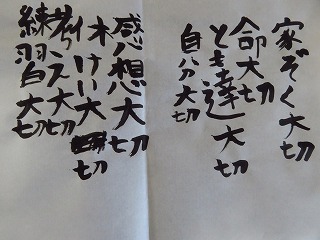 家ぞく大切
命大切
とも達大切
自分大切
感想大切
木けい大切
考え大切
練習大切